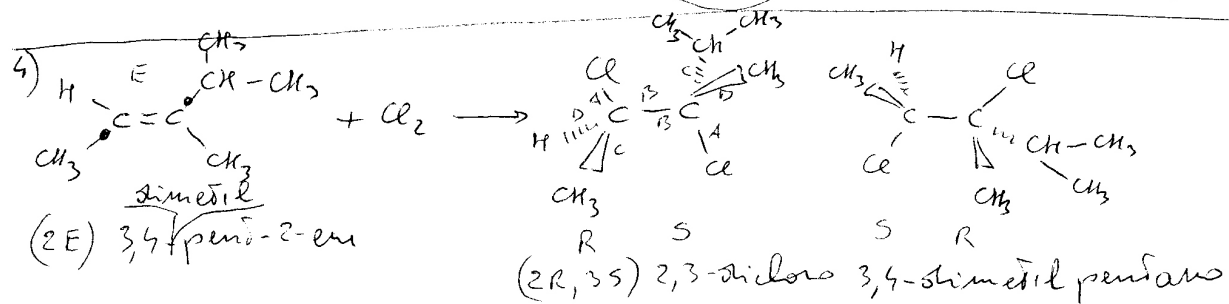 4) E
CH3
H CH-CH3
C=C + Cl2 ⟶
CH3 CH3
dimetil
(2E) 3,4 pent-2-en
CH3 CH3
CH
Cl C CH3
A B D
D C — C
H B A
C Cl
CH3
R S
H Cl
CH3
C — C
Cl CH-CH3
CH3 CH3
S R
(2R, 3S) 2,3-dicloro 3,4-dimetil pentano